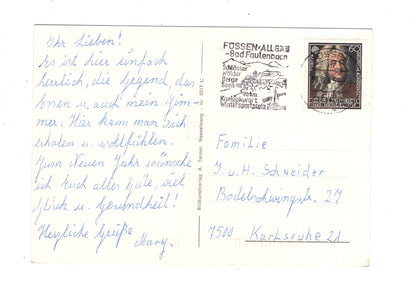 Ihr Lieben!
Es ist hier einfach
herrlich, die Gegend, das
Essen u. auch mein Zim-
mer. Hier kann man sich
erholen u. wohlfühlen.
Zum Neuen Jahr wünsche
ich Euch alles Gute, viel
Glück u. Gesundheit!
Herzliche Grüße
Mary.
Bildkunstverlag A. Tanner, Nesselwang, Nr. 5517
FÜSSEN·ALLGÄU
-Bad Faulenbach
Schlösser
Wälder
Berge
Seen
Kneippkurort
Wintersportplatz
60
Familie
J. u. H. Schneider
Bodelschwinghstr. 27
7500 Karlsruhe 21